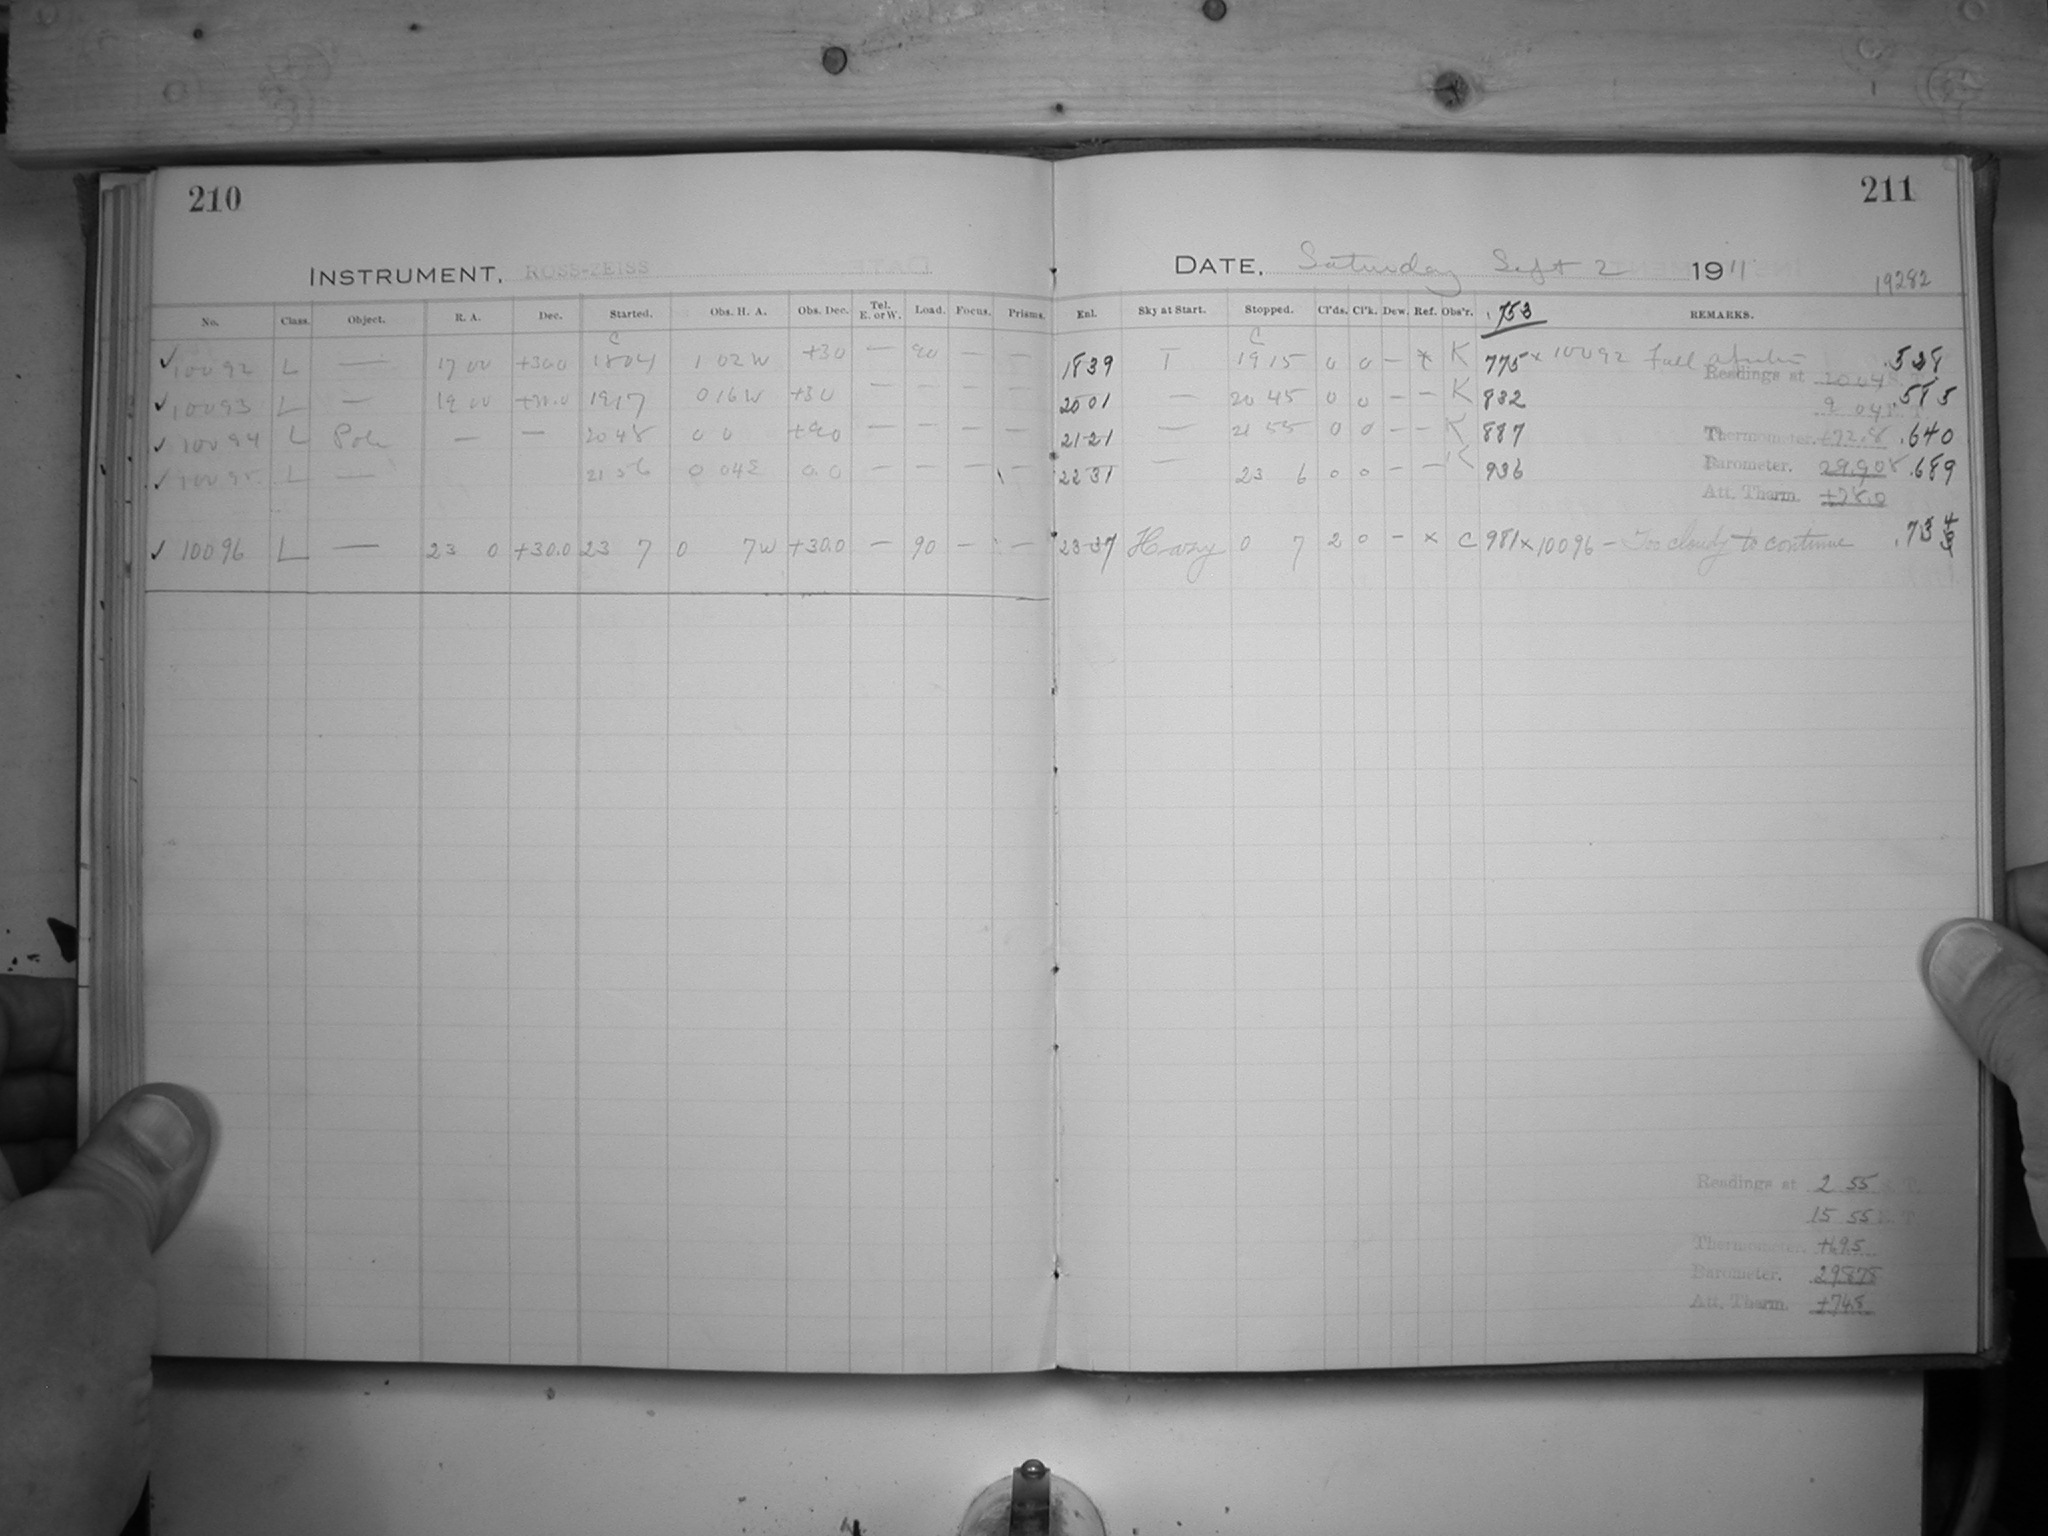 210
INSTRUMENT, ROSS-ZEISS
No. Class. Object. R. A. Dec. Started. Obs. H. A. Obs. Dec. Tel. E. or W. Load. Focus. Prisms.
✓ 10092 L — 17 00 +30.0 C 18 04 1 02 W +30 — 90 — —
✓ 10093 L — 19 00 +30.0 19 17 0 16 W +30 — — — —
✓ 10094 L Pole — — 20 48 0 0 +90 — — — —
✓ 10095 L — 21 56 0 04 E 0.0 — — —
✓ 10096 L — 23 0 +30.0 23 7 0 7 W +30.0 — 90 — —
211
DATE, Saturday Sept 2 1911
19282
Enl. Sky at Start. Stopped. Cl'ds. Cl'k. Dew. Ref. Obs'r. .753 REMARKS.
18 39 T C 19 15 0 0 — × K 775 × 10092 Full .528
Readings at 20 04 S. T.
20 01 — 20 45 0 0 — — K 832 .585
9 04 E. T.
21 21 — 21 55 0 0 — — K 887 Thermometer. +72.8 .640
22 31 — 23 6 0 0 — — K 936 Barometer. 29.908 .689
Att. Therm. +78.0
23 37 Hazy 0 7 2 0 — × C 981 × 10096 — Too cloudy to continue .734
Readings at 2 55 S. T.
15 55 E. T.
Thermometer. +69.5
Barometer. 29.878
Att. Therm. +74.8